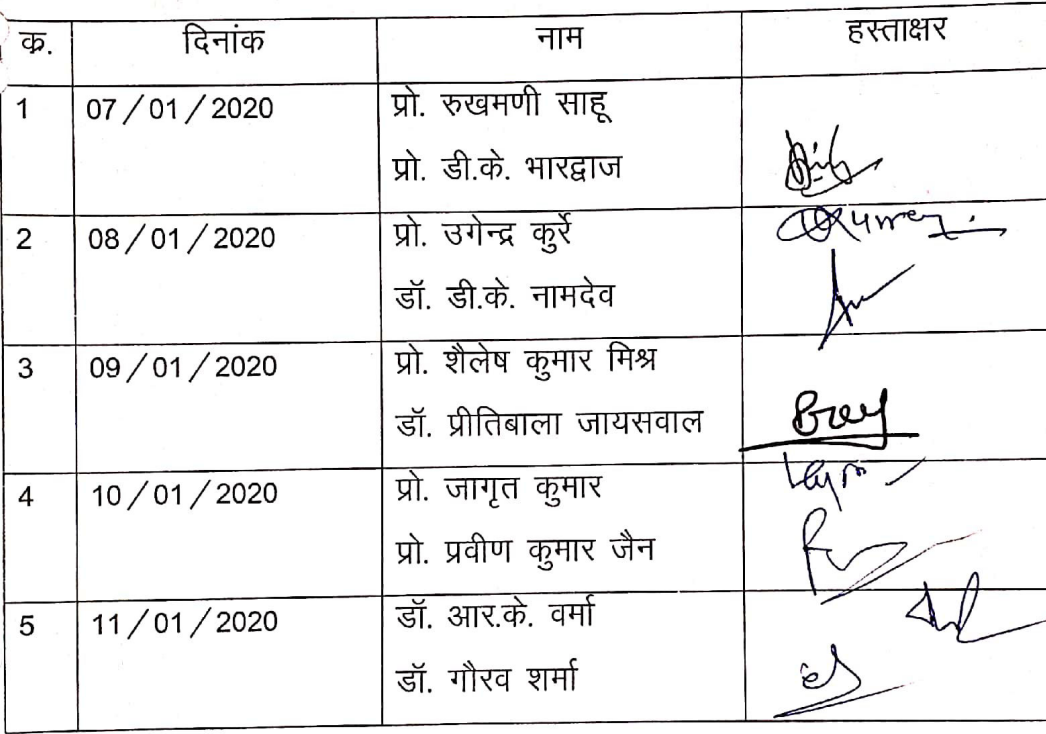 क्र. दिनांक नाम हस्ताक्षर
1 07/01/2020 प्रो. रुखमणी साहू
प्रो. डी.के. भारद्वाज
2 08/01/2020 प्रो. उगेन्द्र कुर्रे
डॉ. डी.के. नामदेव
3 09/01/2020 प्रो. शैलेष कुमार मिश्र
डॉ. प्रीतिबाला जायसवाल
4 10/01/2020 प्रो. जागृत कुमार
प्रो. प्रवीण कुमार जैन
5 11/01/2020 डॉ. आर.के. वर्मा
डॉ. गौरव शर्मा